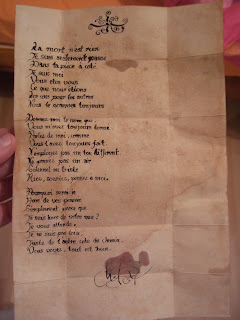 La mort n'est rien
Je suis seulement passé
Dans la pièce à côté
Je suis moi
Vous êtes vous
Ce que nous étions
les uns pour les autres
Nous le sommes toujours
Donnez moi le nom que
Vous m'avez toujours donné
Parlez de moi comme
Vous l'avez toujours fait
N'employez pas un ton différent
Ne prenez pas un air
Solennel ou triste
Riez, souriez, pensez à moi.
Pourquoi serai je
Hors de vos pensées
Simplement parce que
Je suis hors de votre vue ?
Je vous attends.
Je ne suis pas loin,
Juste de l'autre côté du chemin.
Vous voyez, tout est bien.